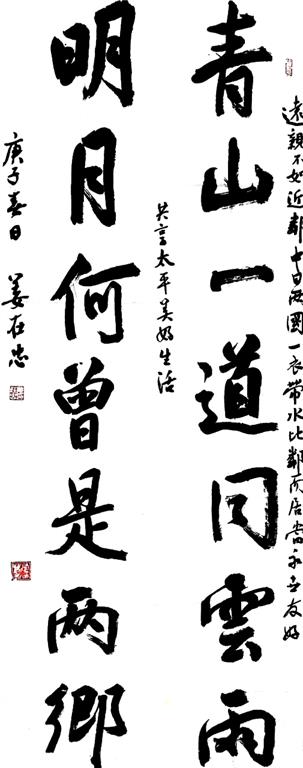 遠親不如近鄰中日两國一衣帶水比鄰而居當永世友好
青山一道同雲雨
共享太平美好生活
明月何曾是两鄉
庚子春日 姜在忠